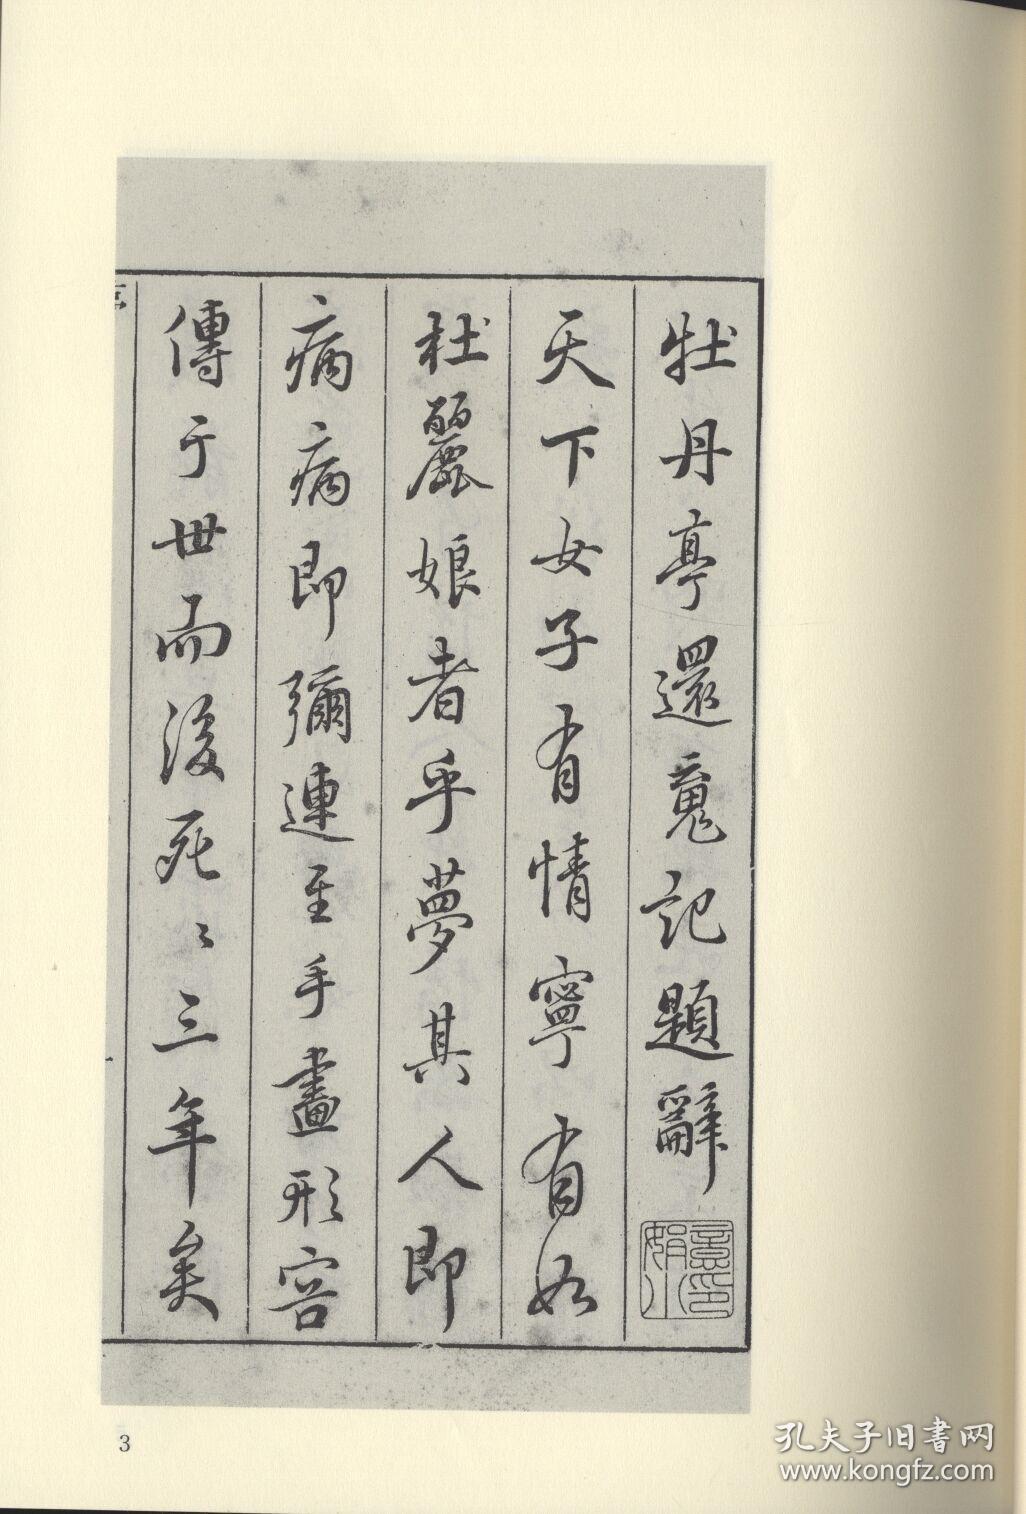 牡丹亭還䰟記題辭
天下女子有情寧有如
杜麗娘者乎夢其人即
病病即彌連至手畫形容
傳于世而後死〻三年矣
3
孔夫子旧书网
www.kongfz.com